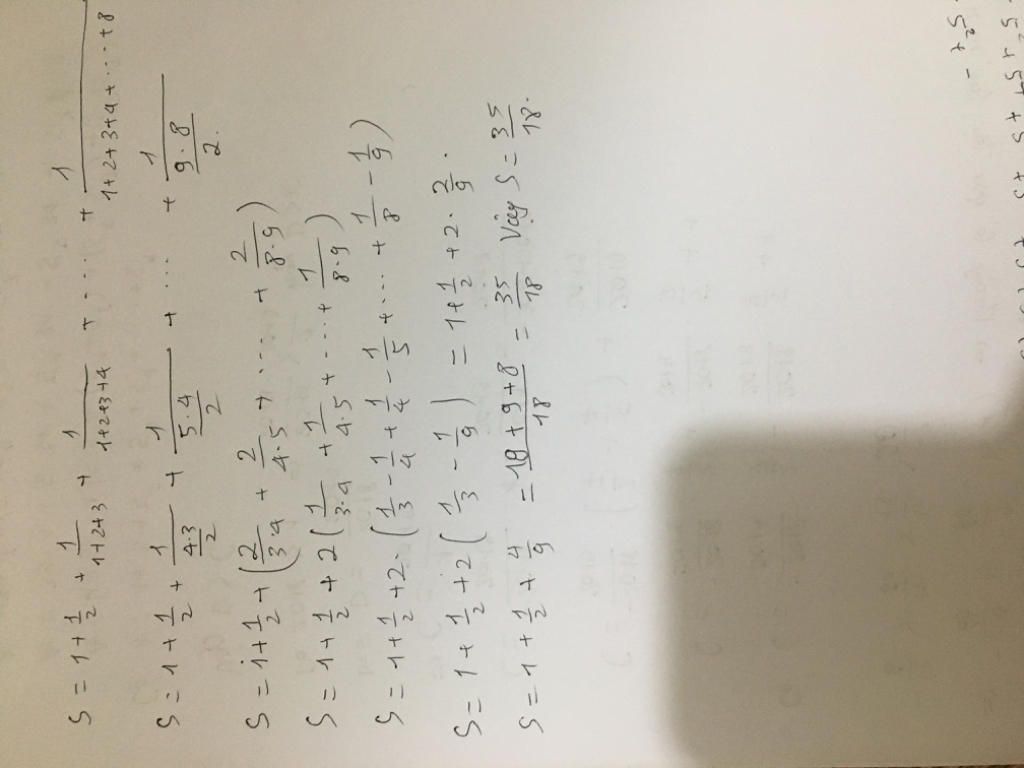 S = 1 + 1/2 + 1/(1+2+3) + 1/(1+2+3+4) + ... + 1/(1+2+3+4+...+8)
S = 1 + 1/2 + 1/(4.3/2) + 1/(5.4/2) + ... + 1/(9.8/2).
S = 1 + 1/2 + (2/3.4 + 2/4.5 + ... + 2/8.9)
S = 1 + 1/2 + 2(1/3.4 + 1/4.5 + ... + 1/8.9)
S = 1 + 1/2 + 2.(1/3 - 1/4 + 1/4 - 1/5 + ... + 1/8 - 1/9)
S = 1 + 1/2 + 2(1/3 - 1/9) = 1 + 1/2 + 2.2/9.
S = 1 + 1/2 + 4/9 = (18+9+8)/18 = 35/18 Vậy S = 35/18.